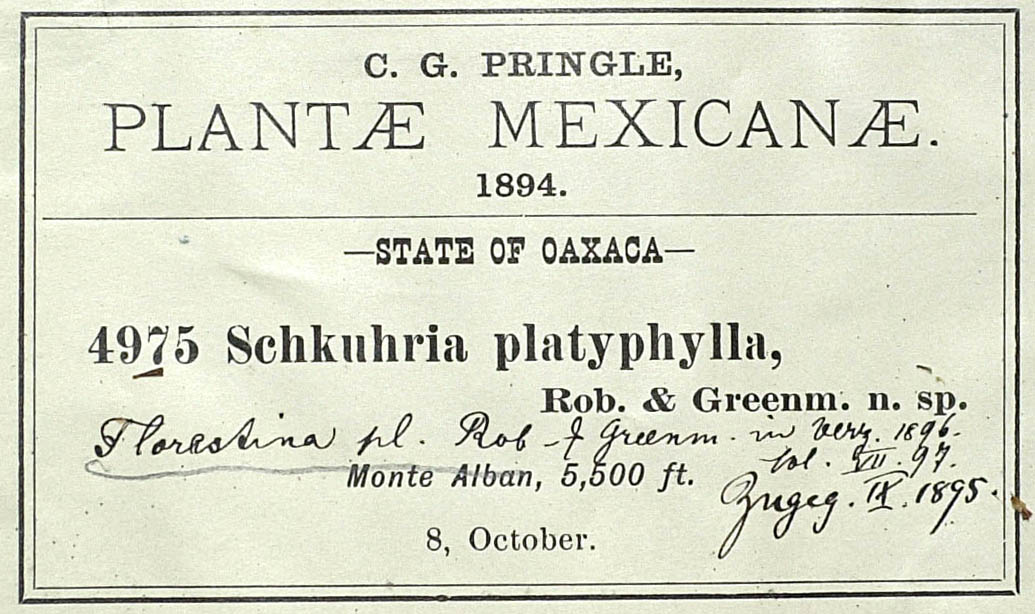 C. G. PRINGLE,
PLANTÆ MEXICANÆ.
1894.
—STATE OF OAXACA—
4975 Schkuhria platyphylla,
Rob. & Greenm. n. sp.
Florestina pl. Rob & Greenm. in Verz. 1896.
Monte Alban, 5,500 ft.
VII. 97.
Zugeg. IX. 1895.
8, October.